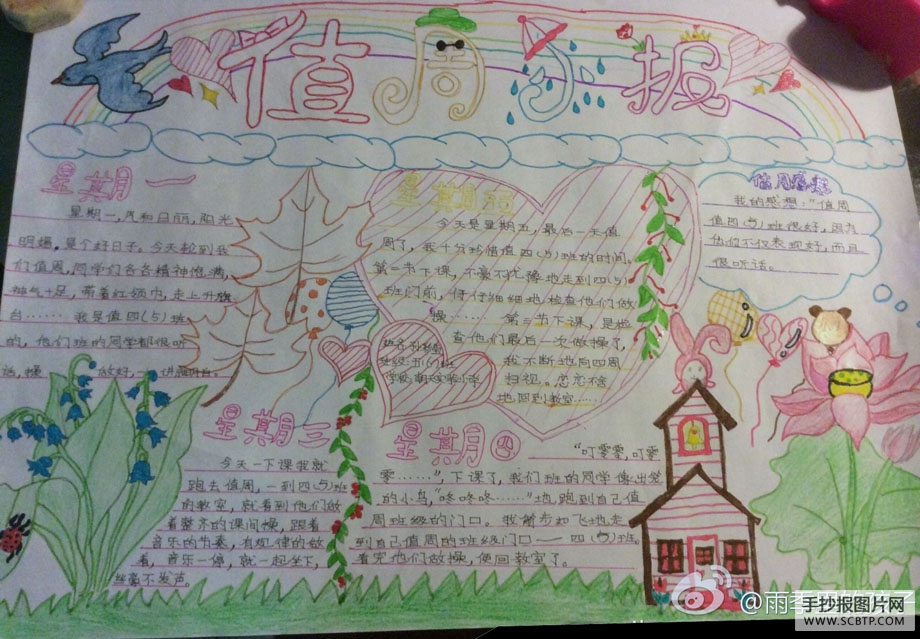 值周小报
星期一
星期一,风和日丽,阳光
明媚。是个好日子。今天轮到我
们值周,同学们各各精神饱满,
神气十足,带着红领巾,走上升旗
台……我是值四(5)班
的,他们班的同学都很听
话,操做好,
星期五
今天是星期五,最后一天值
周了,我十分珍惜值四(5)班的时间。
第一节下课,不毫不犹豫地走到四(5)
班门前,仔仔细细地检查他们做
操……第二节下课,是检
查他们最后一次做操了,
我不断地向四周
扫视。恋恋不舍
地回到教室……
值周感想
我的感想:"值周
值四(5)班很好,因为
他们不仅表现好,而且
很听话。
星期三
今天一下课我就
跑去值周,一到四(5)班
的教室,就看到他们做
着整齐的课间操,跟着
音乐的节奏,有规律的做
着,音乐一停,就一起坐下,
丝毫不发声。
星期四
"叮零零,叮零
零……",下课了,我们班的同学像出笼
的小鸟,"咚咚咚……"地跑到自己值
周班级的门口。我箭步如飞地走
到自己值周的班级门口——四(5)班。
看完他们做操,便回教室了。
手抄报图片网
WWW.SCBTP.COM